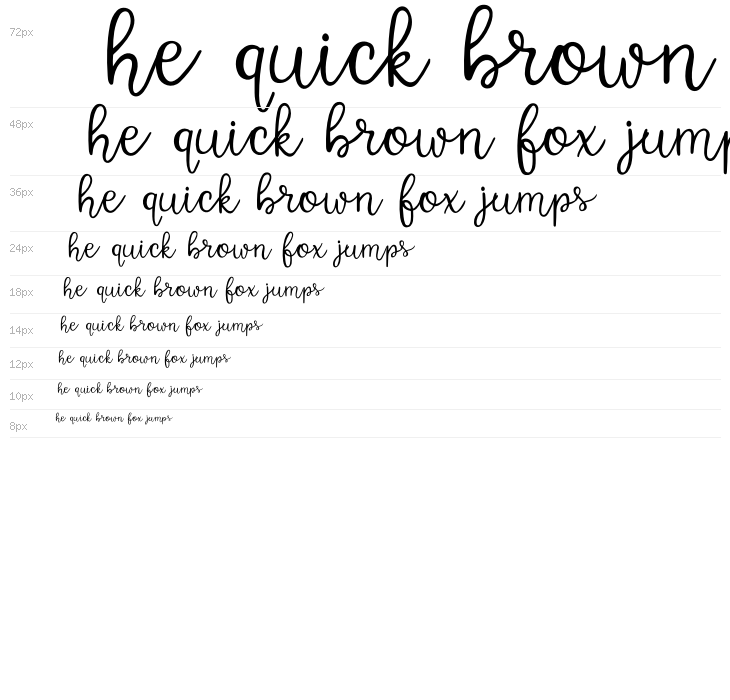 72px he quick brown
48px he quick brown fox jump
36px he quick brown fox jumps
24px he quick brown fox jumps
18px he quick brown fox jumps
14px he quick brown fox jumps
12px he quick brown fox jumps
10px he quick brown fox jumps
8px he quick brown fox jumps